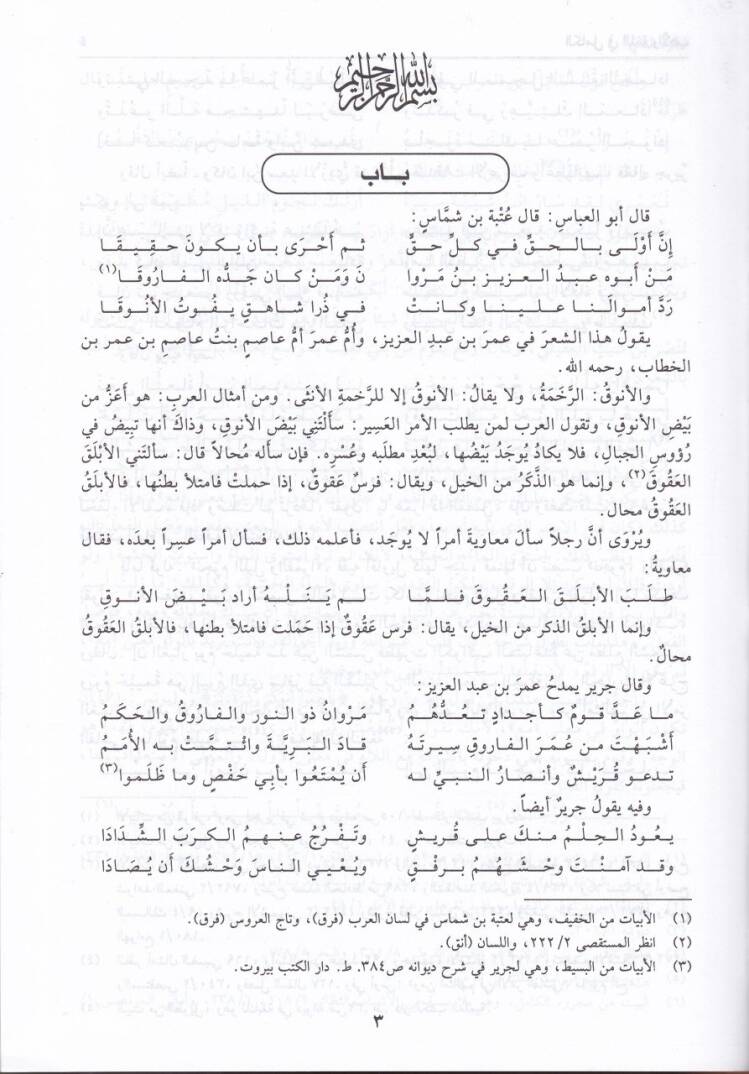 بسم الله الرحمن الرحيم
بـاب
قال أبو العباس: قال عُتْبة بن شمَّاسٍ:
إنّ أوْلَى بالحقّ في كلّ حقٍّ ثم أحْرَى بأن يكونَ حقيقَا
مَنْ أبوه عبدُ العزيزِ بنُ مَرْوا نَ وَمَنْ كان جَدُّه الفاروقَا(١)
رَدَّ أموالَنا علينا وكانتْ في ذُرا شاهقٍ يفُوتُ الأنُوقَا
يقولُ هذا الشعرَ في عمرَ بن عبدِ العزيز، وأُمُّ عمرَ أمُّ عاصمٍ بنتُ عاصمِ بن عمر بن
الخطاب، رحمه الله.
والأنوقُ: الرَّخَمَةُ، ولا يقالُ: الأنوقُ إلا للرَّخمةِ الأنثى. ومن أمثال العربِ: هو أعَزُّ من
بَيْضِ الأنوقِ، وتقول العرب لمن يطلب الأمرَ العَسِير: سألْتَنِي بَيْضَ الأنوقِ، وذاكَ أنها تبِيضُ في
رُؤوسِ الجبالِ، فلا يكادُ يُوجَدُ بَيْضُها، لبُعْدِ مطلَبه وعُسْرِه. فإن سأله مُحالاً قال: سألتَني الأبْلَقَ
العَقُوقَ(٢)، وإنما هو الذَّكَرُ من الخيل، ويقال: فرسٌ عقوقٌ، إذا حملتْ فامتلأ بطنُها، فالأبلَقُ
العَقُوقُ محال.
ويُرْوَى أنَّ رجلاً سألَ معاويةَ أمراً لا يُوجَد، فأعلمه ذلك، فسأل أمراً عسِراً بعدَه، فقال
معاويةُ:
طلَبَ الأبلَقَ العَقُوقَ فلمَّا لم يَنَلْهُ أراد بَيْضَ الأنوقِ
وإنما الأبلقُ الذكر من الخيل، يقال: فرس عَقُوقٌ إذا حَمَلت فامتلأ بطنها، فالأبلقُ العَقُوقُ
محالٌ.
وقال جرير يمدحُ عمرَ بن عبد العزيز:
ما عَدَّ قومٌ كأجدادٍ تَعُدُّهُمُ مَروانُ ذو النورِ والفاروقُ والحَكَمُ
أشْبَهْتَ من عُمَرَ الفاروقِ سِيرتَهُ قادَ البَرِيَّةَ وائتمَّتْ به الأُمَمُ
تدعو قُرَيْشٌ وأنصارُ النبيِّ له أن يُمْتَعُوا بأبي حَفْصٍ وما ظَلَموا(٣)
وفيه يقولُ جريرٌ أيضاً.
يعُودُ الحِلْمُ منكَ على قُريشٍ وتَفْرُجُ عنهمُ الكرَبَ الشِّدَادَا
وقد آمَنْتَ وحْشَهُم برِفْقٍ ويُعْيي الناسَ وَحْشُكَ أن يُصَادَا
(١) الأبيات من الخفيف، وهي لعتبة بن شماس في لسان العرب (فرق)، وتاج العروس (فرق).
(٢) انظر المستقصى ٢/٢٢٢، واللسان (أنق).
(٣) الأبيات من البسيط، وهي لجرير في شرح ديوانه ص٣٨٤ ط. دار الكتب بيروت.
٣